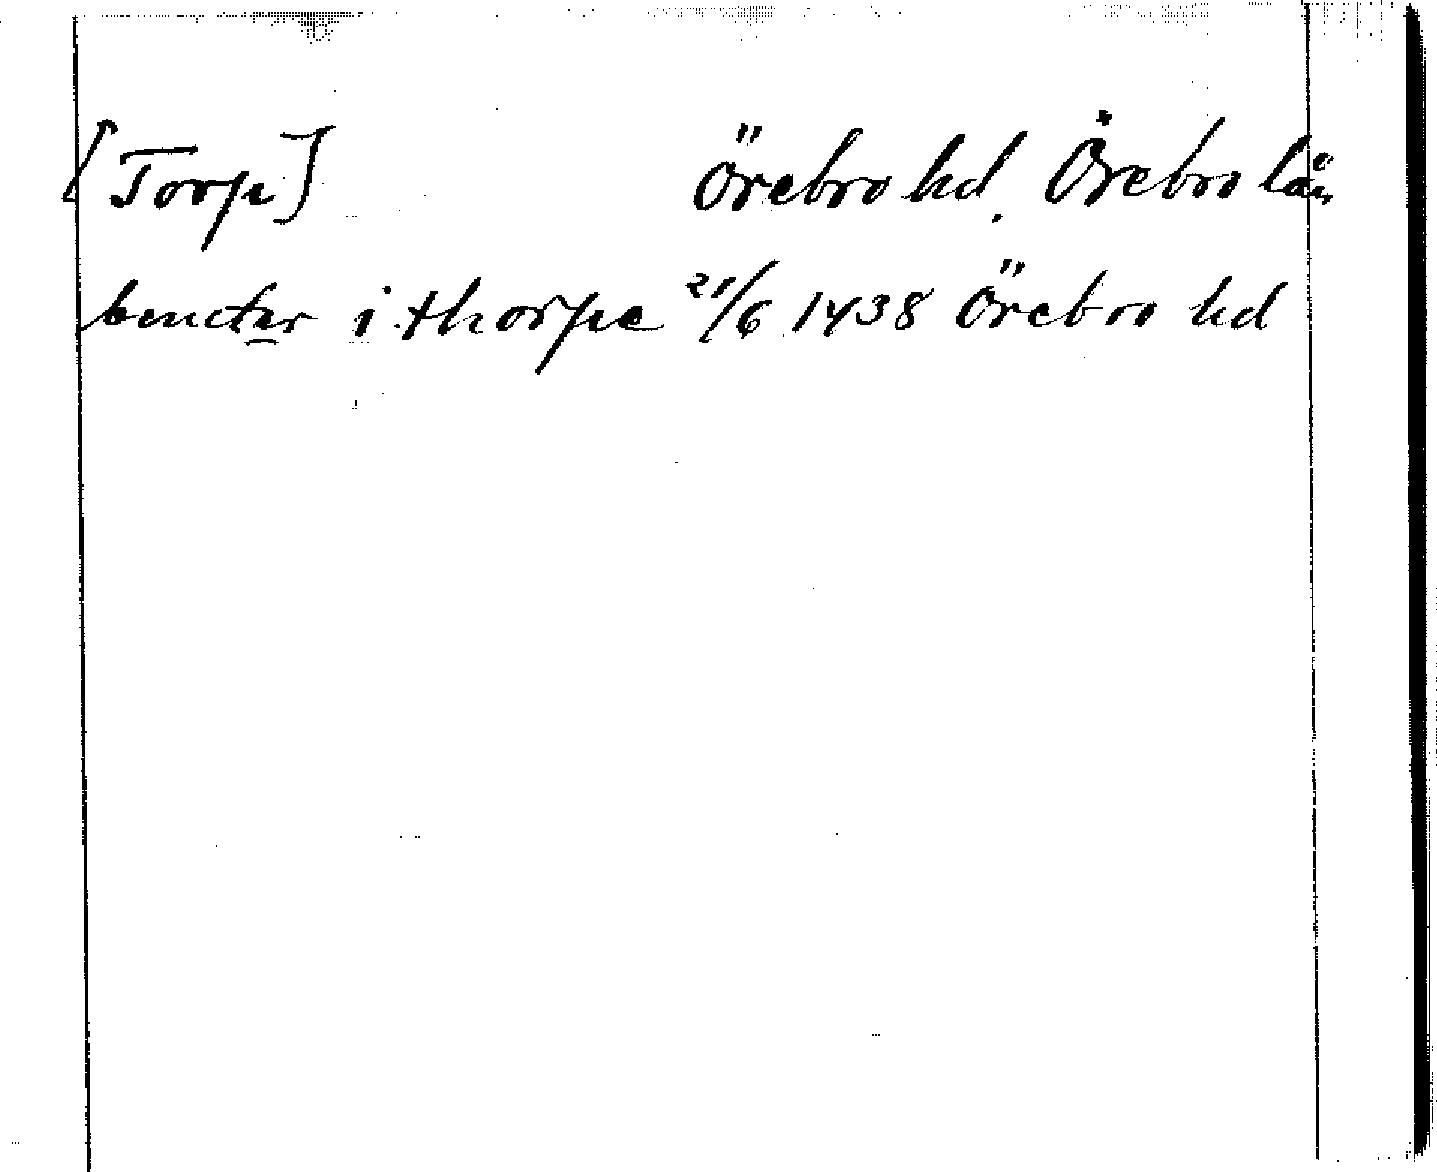 [Torp] Örebro hd. Örebro län
bencter i thorpe 21/6 1438 Örebro hd